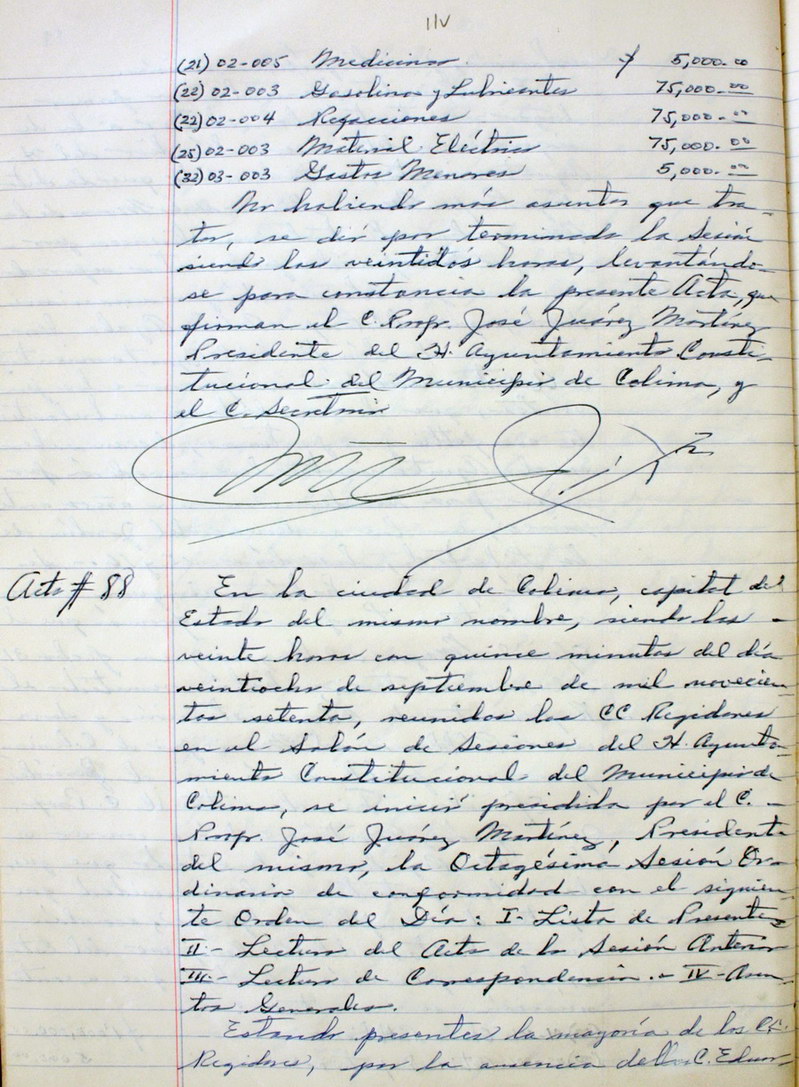 (21) 02-005 Medicinas $ 5,000.00
(22) 02-003 Gasolina y Lubricantes 75,000.00
(22) 02-004 Refacciones 75,000.00
(25) 02-003 Material Eléctrico 75,000.00
(32) 03-003 Gastos Menores 5,000.00
No habiendo más asuntos que tra-
tar, se dió por terminada la Sesión
siendo las veintidós horas, levantándo-
se para constancia la presente Acta, que
firman el C. Profr. José Juárez Martínez
Presidente del H. Ayuntamiento Consti-
tucional del Municipio de Colima, y
el C. Secretario
Acta # 88
En la ciudad de Colima, capital del
Estado del mismo nombre, siendo las -
veinte horas con quince minutos del día
veintiocho de septiembre de mil novecien-
tos setenta, reunidos los CC Regidores
en el Salón de Sesiones del H. Ayunta-
miento Constitucional del Municipio de
Colima, se inició presidida por el C. -
Profr. José Juárez Martínez, Presidente
del mismo, la Octagésima Sesión Or-
dinaria de conformidad con el siguien-
te Orden del Día: I- Lista de Presentes
II- Lectura del Acta de la Sesión Anterior
III- Lectura de Correspondencia.- IV- Asun-
tos Generales.
Estando presentes la mayoría de los CC.
Regidores, por la ausencia del C. Eduar-